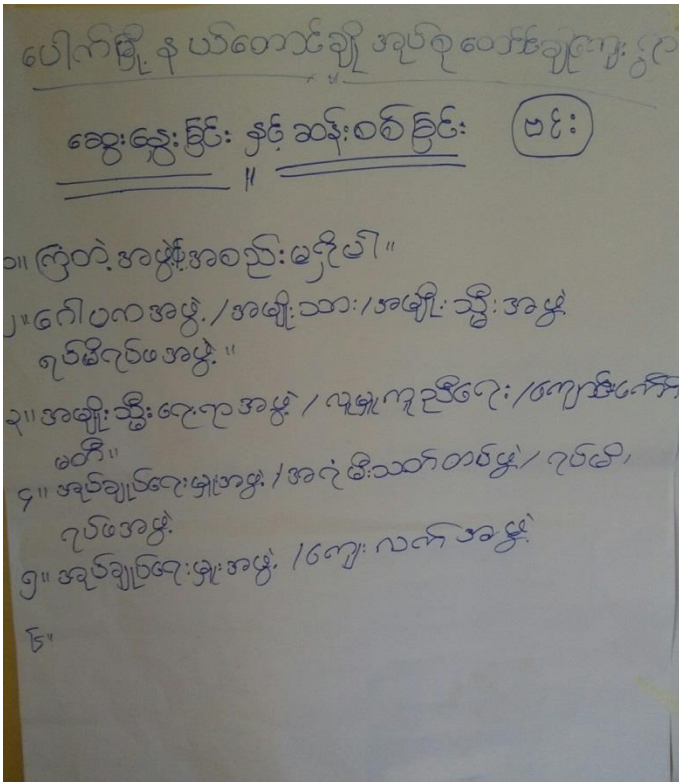 ပေါက်မြို့နယ်တောင်ချို အုပ်စု တောင်ချိုကျေးရွာ
ဆွေးနွေးခြင်း နှင့် ဆန်းစစ်ခြင်း
၁။ ကြံ့တဲ့အဖွဲ့အစည်းမရှိပါ။
၂။ ဂေါပကအဖွဲ့ / အမျိုးသား / အမျိုးသ္မီးအဖွဲ့
ရပ်မိရပ်ဖအဖွဲ့။
၃။ အမျိုးသ္မီးရေးရာအဖွဲ့ / လူမှုကူညီရေး / ကျောင်းကော်
မတီ။
၄။ အုပ်ချုပ်ရေးမှူးအဖွဲ့ / အရံမီးသတ်တပ်ဖွဲ့ / ရပ်မိ၊
ရပ်ဖအဖွဲ့
၅။ အုပ်ချုပ်ရေးမှူးအဖွဲ့ / ကျေးလက်အဖွဲ့
၆။